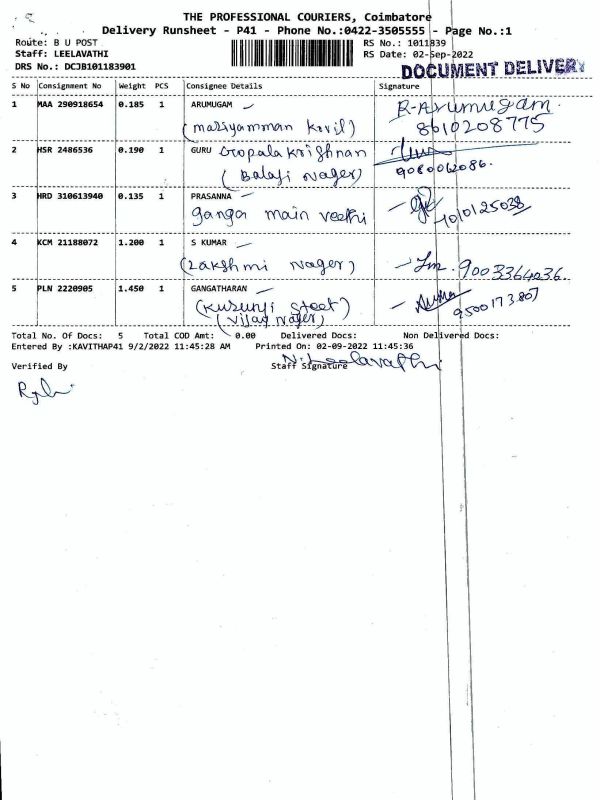 THE PROFESSIONAL COURIERS, Coimbatore
Delivery Runsheet - P41 - Phone No.:0422-3505555 - Page No.:1
Route: B U POST RS No.: 1011839
Staff: LEELAVATHI RS Date: 02-Sep-2022
DRS No.: DCJB101183901 DOCUMENT DELIVERY
S No Consignment No Weight PCS Consignee Details Signature
1 MAA 290918654 0.185 1 ARUMUGAM R-Arumugam.
(mariyamman kovil) 8610208775
2 HSR 2486536 0.190 1 GURU Gopalakrishnan
(Balaji Nager) 9080062086.
3 HRD 310613940 0.135 1 PRASANNA
ganga main veethi
4 KCM 21188072 1.200 1 S KUMAR
(Lakshmi Nager) 9003364036
5 PLN 2220905 1.450 1 GANGATHARAN
(Kurunji steet) 9500173807
(vijay Nager)
Total No. Of Docs: 5 Total COD Amt: 0.00 Delivered Docs: Non Delivered Docs:
Entered By :KAVITHAP41 9/2/2022 11:45:28 AM Printed On: 02-09-2022 11:45:36
Verified By Staff Signature